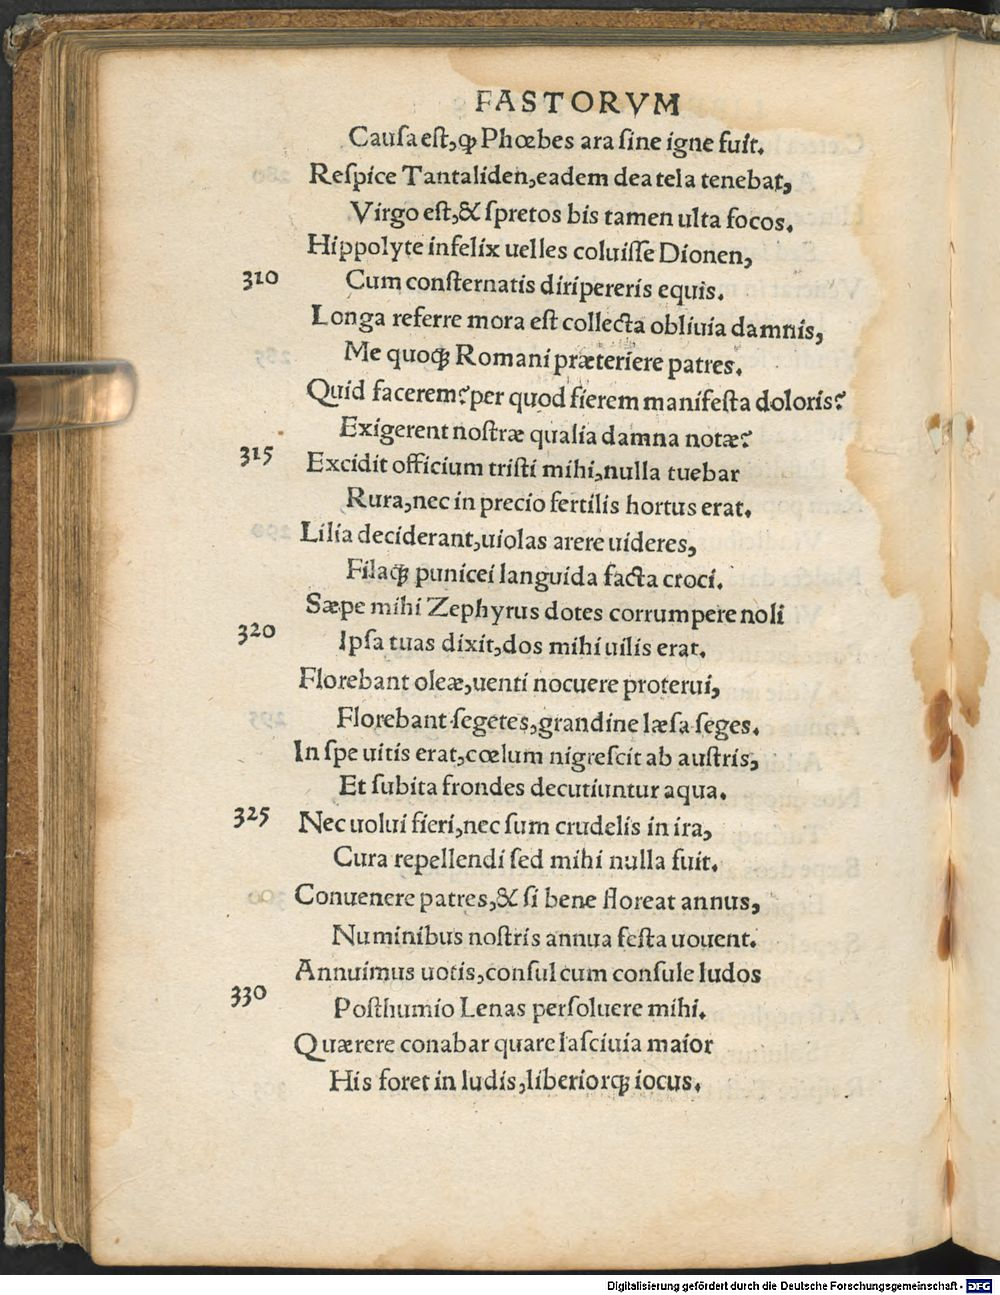 FASTORVM
Cauſa eſt, ꝙ Phœbes ara ſine igne fuit.
Reſpice Tantaliden, eadem dea tela tenebat,
Virgo eſt, & ſpretos bis tamen ulta focos.
Hippolyte infelix uelles coluiſſe Dionen,
310 Cum conſternatis diripereris equis.
Longa referre mora eſt collecta obliuia damnis,
Me quoqꝫ Romani præteriere patres.
Quid facerem? per quod fierem manifeſta doloris?
Exigerent noſtræ qualia damna notæ?
315 Excidit officium triſti mihi, nulla tuebar
Rura, nec in precio fertilis hortus erat.
Lilia deciderant, uiolas arere uideres,
Filaqꝫ punicei languida facta croci.
Sæpe mihi Zephyrus dotes corrumpere noli
320 Ipſa tuas dixit, dos mihi uilis erat.
Florebant oleæ, uenti nocuere proterui,
Florebant ſegetes, grandine læſa ſeges.
In ſpe uitis erat, cœlum nigreſcit ab auſtris,
Et ſubita frondes decutiuntur aqua.
325 Nec uolui fieri, nec ſum crudelis in ira,
Cura repellendi ſed mihi nulla fuit.
Conuenere patres, & ſi bene floreat annus,
Numinibus noſtris annua feſta uouent.
Annuimus uotis, conſul cum conſule ludos
330 Poſthumio Lenas perſoluere mihi.
Quærere conabar quare laſciuia maior
His foret in ludis, liberiorqꝫ iocus.
Digitalisierung gefördert durch die Deutsche Forschungsgemeinschaft - DFG